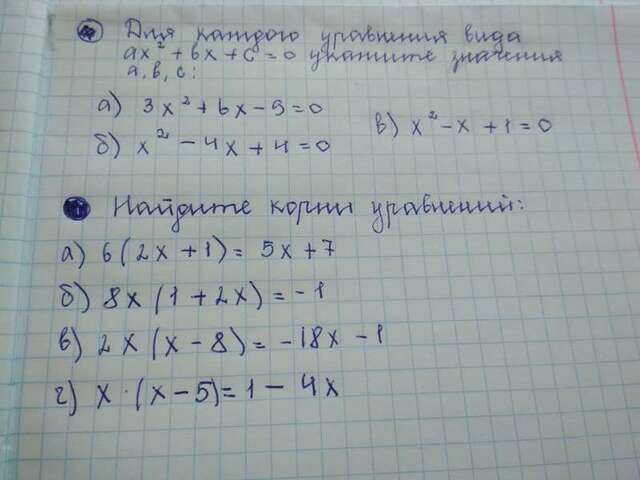 Для каждого уравнения вида
ax² + bx + c = 0 укажите значения
a, b, c:
а) 3x² + 6x - 9 = 0
б) x² - 4x + 4 = 0
в) x² - x + 1 = 0
Найдите корни уравнений:
а) 6(2x + 1) = 5x + 7
б) 8x(1 + 2x) = -1
в) 2x(x - 8) = -18x - 1
г) x · (x - 5) = 1 - 4x